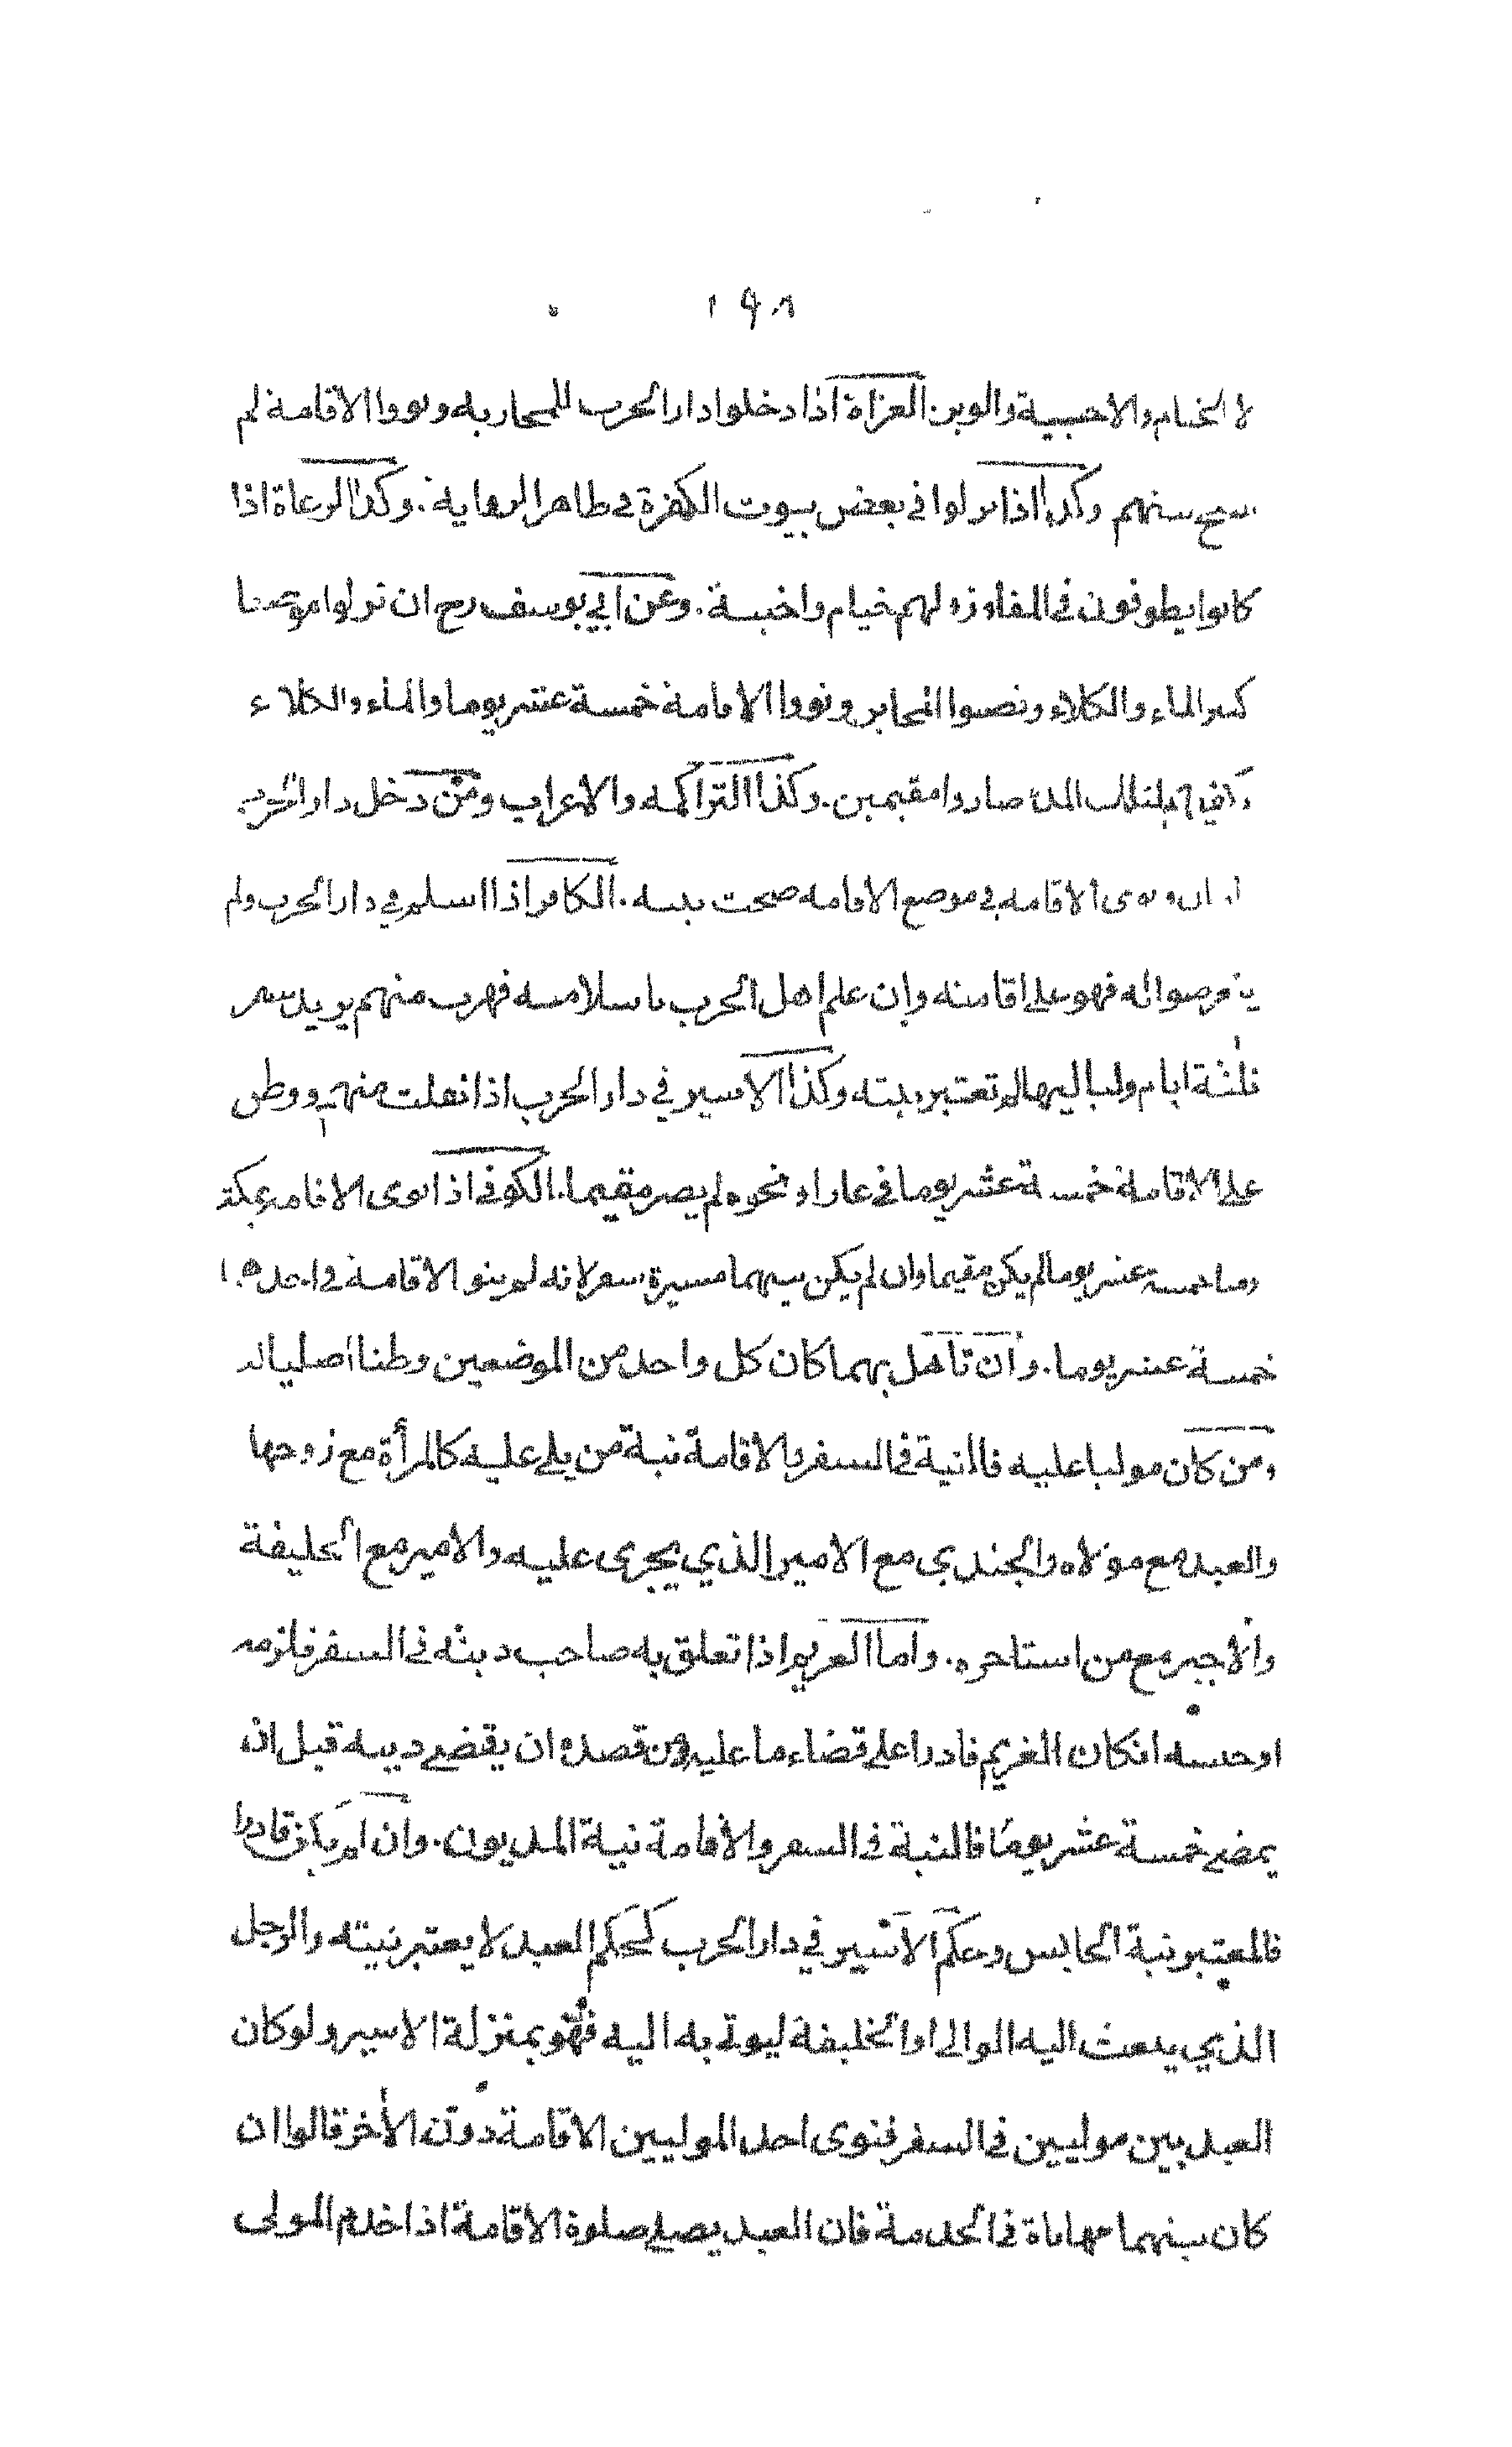 ١٩٨
لا الخيام والاخبية والوبر. الغزاة اذا دخلوا دار الحرب للمحاربة ونووا الاقامة لم
تصح نيتهم وكذا اذا نزلوا في بعض بيوت الكفرة في ظاهر الرواية. وكذا الرعاة اذا
كانوا يطوفون في المفاوزه لهم خيام واخبية. وعن ابي يوسف رح ان نزلوا موضعا
كثير الماء والكلاء ونصبوا المخابز ونووا الاقامة خمسة عشر يوما والماء والكلاء
لتلك المدة صاروا مقيمين. وكذا التراكمة والاعراب ومن دخل دار الحرب
ونوى الاقامة في موضع الاقامة صحت نيته. الكافر اذا اسلم في دار الحرب ولم
يتعرضوا له فهو على اقامته وان علم اهل الحرب باسلامه فهرب منهم يريد سفر
ثلثة ايام ولياليها لم تعتبر نيته وكذا الاسير في دار الحرب اذا انفلت منهم ووطن
على الاقامة خمسة عشر يوما في غار او نحوه لم يصر مقيما. الكوفى اذا نوى الاقامة بمكة
ومنا خمسة عشر يوما لم يكن مقيما وان لم يكن بينهما مسيرة سفر لانه لم ينو الاقامة في احدهما
خمسة عشر يوما. وان تأهل بهما كان كل واحد من الموضعين وطنا اصليا له
ومن كان موليا عليه فالنية في السفر بالاقامة نية من يلي عليه كالمرأة مع زوجها
والعبد مع مولاه والجندي مع الامير الذي يجرى عليه والامير مع الخليفة
والأجير مع من استاجره. واما الغريم اذا تعلق به صاحب دينه في السفر فلزمه
او حبسه انكان الغريم قادرا على قضاء ما عليه ومن قصده ان يقضي دينه قبل ان
يمضي خمسة عشر يومًا فالنية في السفر والاقامة نية المديون. وان لم يكن قادرا
فالمعتبر نية الحابس وحكم الاسير في دار الحرب كحكم العبد لا يعتبر نيته والرجل
الذي يبعث اليه الوالى او الخليفة ليوتى به اليه فهو بمنزلة الاسير ولو كان
العبد بين موليين في السفر فنوى احد الموليين الاقامة دون الأخر قالوا ان
كان بينهما مهاياة في الخدمة فان العبد يصلي صلوة الاقامة اذا خدم المولى